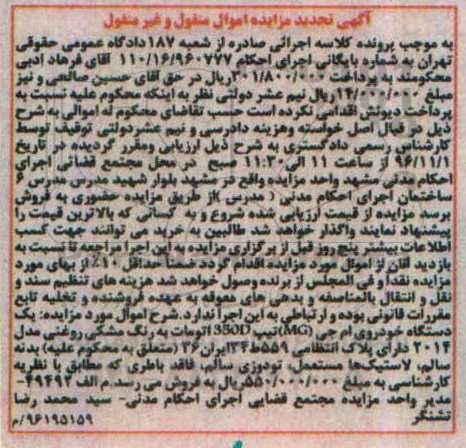 آگهی تجدید مزایده اموال منقول و غیر منقول
به موجب پرونده کلاسه اجرائی صادره از شعبه ۱۸۷دادگاه عمومی حقوقی
تهران به شماره بایگانی اجرای احکام ۱۱۰/۱۶/۹۶۰۷۷۷ آقای فرهاد ادبی
محکومند به پرداخت ۳۰۱/۸۰۰/۰۰۰ریال در حق آقای حسین صالحی و نیز
مبلغ ۱۴/۰۰۰/۰۰۰ریال نیم عشر دولتی نظر به اینکه محکوم علیه نسبت به
پرداخت دیونش اقدامی نکرده است حسب تقاضای محکوم له اموالی به شرح
ذیل در قبال اصل خواسته وهزینه دادرسی و نیم عشردولتی توقیف توسط
کارشناس رسمی دادگستری به شرح ذیل ارزیابی ومقرر گردیده در تاریخ
۹۶/۱۱/۱ از ساعت ۱۱ الی۱۱:۳۰ صبح در محل مجتمع قضائی اجرای
احکام مدنی مشهد واحد مزایده واقع در مشهد بلوار شهید مدرس مدرس ۶
ساختمان اجرای احکام مدنی ( مدرس )از طریق مزایده حضوری به فروش
برسد مزایده از قیمت ارزیابی شده شروع و به کسانی که بالاترین قیمت را
پیشنهاد نمایند واگذار خواهد شد. طالبین به خرید می توانند جهت کسب
اطلاعات بیشتر پنج روز قبل از برگزاری مزایده به این اجرا مراجعه تا نسبت به
بازدید آنان از اموال مورد مزایده اقدام گردد ضمنا حداقل ۱۰٪ از بهای مورد
مزایده نقدا و فی المجلس از برنده وصول خواهد شد هزینه های تنظیم سند و
نقل و انتقال بالمناصفه و بدهی های معوقه به عهده فروشنده و تخلیه تابع
مقررات قانونی بوده و ارتباطی به این اجرا ندارد.شرح اموال مورد مزایده: یک
دستگاه خودروی ام جی (MG)تیپ 350D اتومات به رنگ مشکی روغنی مدل
۲۰۱۴ دارای پلاک انتظامی ۵۵۹ط۳۴ایران۳۶ (متعلق به محکوم علیه) بدنه
سالم، لاستیک‌ها مستعمل، تودوزی سالم، فاقد باطری که مطابق با نظریه
کارشناسی به مبلغ ۵۵۰/۰۰۰/۰۰۰ریال به فروش می رسد.م الف ۴۹۴۹۲-
مدیر واحد مزایده مجتمع قضایی اجرای احکام مدنی- سید محمد رضا
تشتگر
۹۶۱۹۵۱۵۹/م